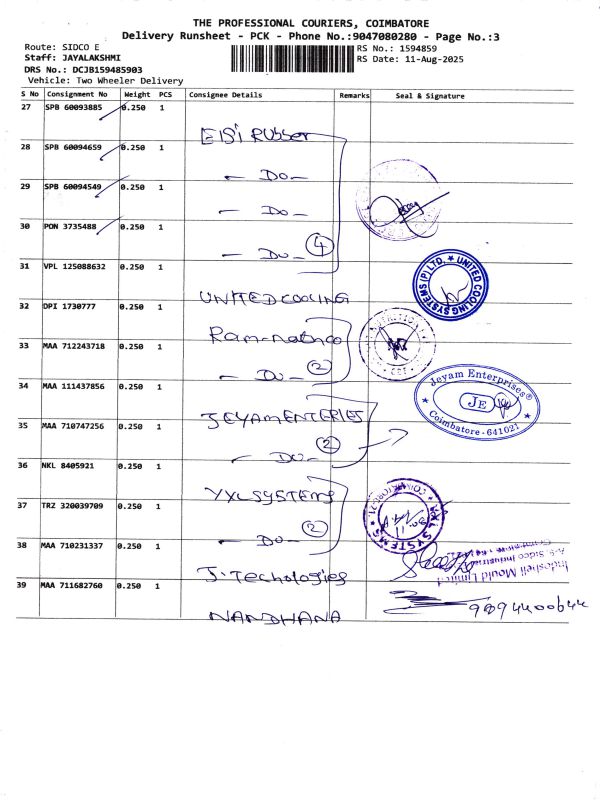 THE PROFESSIONAL COURIERS, COIMBATORE
Delivery Runsheet - PCK - Phone No.:9047080280 - Page No.:3
Route: SIDCO E
RS No.: 1594859
Staff: JAYALAKSHMI
RS Date: 11-Aug-2025
DRS No.: DCJB159485903
Vehicle: Two Wheeler Delivery
S No Consignment No Weight PCS Consignee Details Remarks Seal & Signature
27 SPB 60093885 0.250 1
EISI Rubber
28 SPB 60094659 0.250 1
— Do —
29 SPB 60094549 0.250 1
— Do —
30 PON 3735488 0.250 1
— Do — 4
31 VPL 125088632 0.250 1
UNITED COOLING
UNITED COOLING SYSTEMS (P) LTD.
32 DPI 1730777 0.250 1
33 MAA 712243718 0.250 1
— Do — 2
34 MAA 111437856 0.250 1
Jeyam Enterprises®
JE
Coimbatore - 641021
35 MAA 710747256 0.250 1
— Do — 2
36 NKL 8405921 0.250 1
YXL SYSTEMS
37 TRZ 320039709 0.250 1
— Do — 2
38 MAA 710231337 0.250 1
J. Techologies
Indoshell Mould Limited
39 MAA 711682760 0.250 1
NANDHANA
9894400644